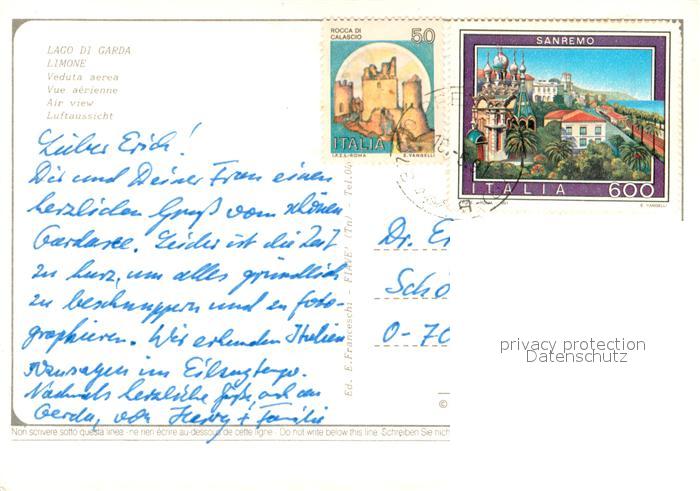 LAGO DI GARDA
LIMONE
Veduta aerea
Vue aérienne
Air view
Luftaussicht
ROCCA DI
CALASCIO
50
ITALIA
I.P.Z.S.-ROMA E. VANGELLI
SANREMO
ITALIA 600
E. VANGELLI
Lieber Erich!
Dir und Deiner Frau einen
herzlichen Gruß vom schönen
Gardasee. Leider ist die Zeit
zu kurz, um alles gründlich
zu beschnuppern und zu foto-
graphieren. Wir erkunden Italien
sozusagen im Eilzugtempo.
Nochmals herzliche Grüße, auch an
Gerda, von Harry + Familie
Ed. E. Franceschi - FIAVE' (Tn)
Dr. E
Schö
O-70
privacy protection
Datenschutz
©
Non scrivere sotto questa linea - ne rien écrire au-dessous de cette ligne - Do not write below this line. Schreiben Sie nich